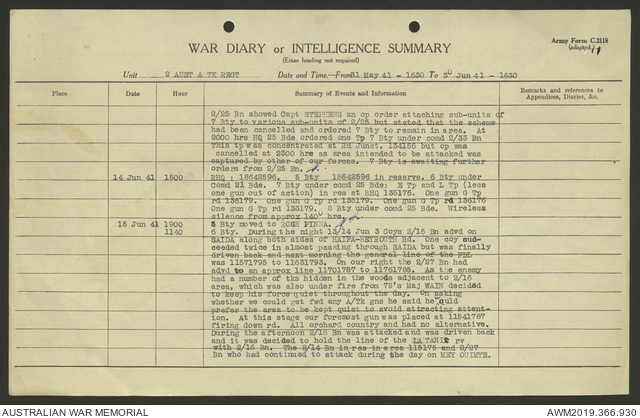 Army Form C.2118
(adapted)
WAR DIARY or INTELLIGENCE SUMMARY
(Erase heading not required)
Unit 2 AUST A TK REGT Date and Time.—From 31 May 41 - 1630 To 30 Jun 41 - 1630
Place Date Hour Summary of Events and Information Remarks and references to Appendices, Diaries, &c.
2/25 Bn showed Capt STEPHENS an op order attaching sub-units of
7 Bty to various sub-units of 2/25 but stated that the scheme
had been cancelled and ordered 7 Bty to remain in area. At
2000 hrs HQ 25 Bde ordered one Tp 7 Bty under comd 2/33 Bn
This tp was concentrated at Rd Junct. 134156 but op was
cancelled at 2300 hrs as area intended to be attacked was
captured by other of our forces. 7 Bty is awaiting further
orders from 2/25 Bn.
14 Jun 41 1500 RHQ - 18642596. 5 Bty 18642596 in reserve. 6 Bty under
Comd 21 Bde. 7 Bty under comd 25 Bde: E Tp and L Tp (less
one gun out of action) in res at BHQ 135176. One gun G Tp
rd 136179. One gun G Tp rd 133179. One gun G Tp rd 136176
One gun G Tp rd 135179. 8 Bty under comd 25 Bde. Wireless
silence from approx 1400 hrs.
15 Jun 41 1900 5 Bty moved to ROSH PINNA.
1140 6 Bty. During the night 13/14 Jun 3 Coys 2/16 Bn advd on
SAIDA along both sides of HAIFA-BEYROUTH Rd. One coy suc-
ceeded twice in almost passing through SAIDA but was finally
driven back and next morning the general line of the FDL
was 11571795 to 11631793. On our right the 2/27 Bn had
advd to an approx line 11701787 to 11761785. As the enemy
had a number of tks hidden in the woods adjacent to 2/16
area, which was also under fire from 75's Maj WAIN decided
to keep his force quiet throughout the day. On asking
whether we could get fwd any A/TK gns he said he would
prefer the area to be kept quiet to avoid attracting attent-
ion. At this stage our foremost gun was placed at 11541787
firing down rd. All orchard country and had no alternative.
During the afternoon 2/16 Bn was attacked and was driven back
and it was decided to hold the line of the LATANIE rv
with 2/16 Bn. The 2/14 Bn in res in area 115175 and 2/27
Bn who had continued to attack during the day on MEY OUIMYE.
AUSTRALIAN WAR MEMORIAL
AWM2019.366.930